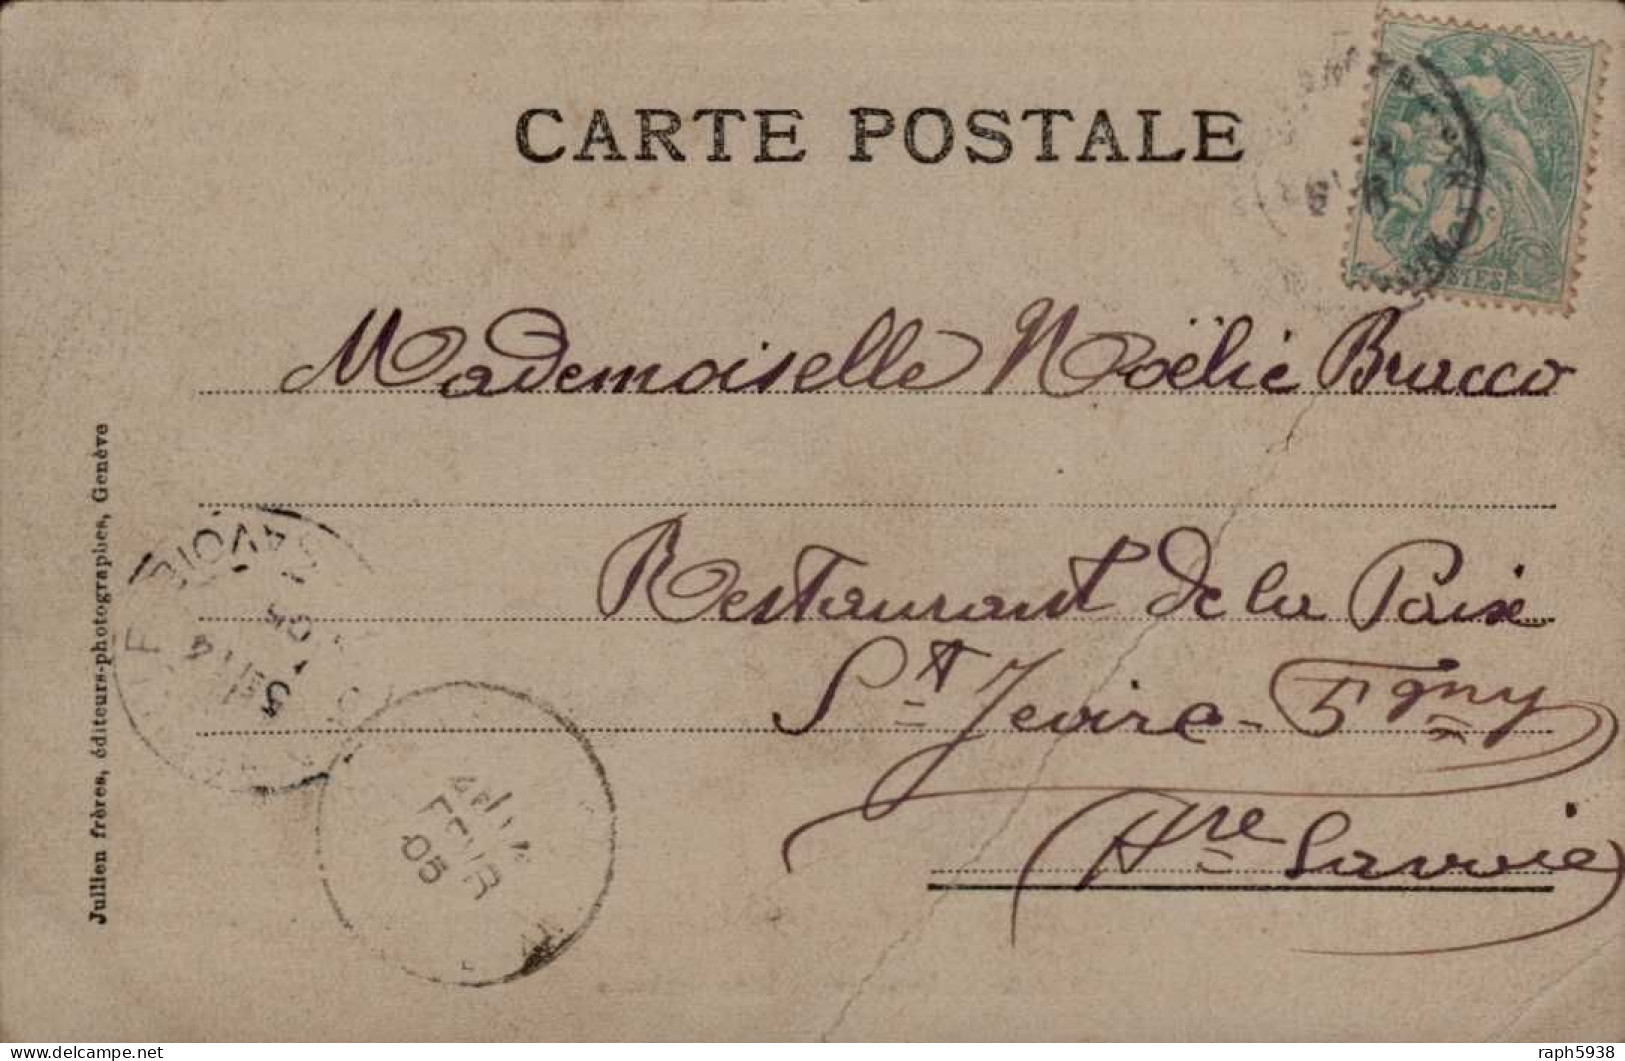 CARTE POSTALE
Mademoiselle Noëlie Bracco
Restaurant de la Paix
St Jeoire - Fgny
Hte Savoie
Jullien frères, éditeurs-photographes, Genève
SAVOIE
05
FEVR
05
delcampe.net
raph5938